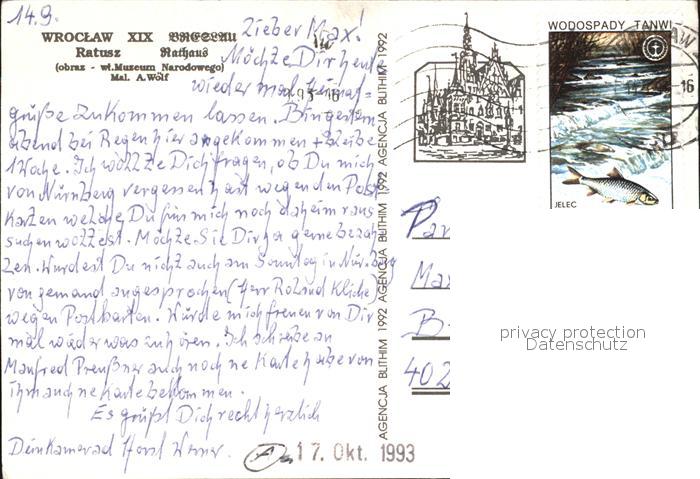 14.9.
WROCŁAW XIX BRESLAU
Ratusz Rathaus
(obraz - wł. Muzeum Narodowego)
Mal. A. Wölf
Lieber Max!
Möchte Dir heute
wieder mal Heimat=
grüße zukommen lassen. Bin gestern
abend bei Regen hier angekommen + bleibe
1 Woche. Ich wollte Dich fragen, ob Du mich
von Nürnberg vergessen hast wegen den Post
Karten welche Du für mich noch daheim raus
suchen wolltest. Möchte Sie Dir ja gerne bezah
len. Wurdest Du nicht auch am Sonntag in Nürnberg
von jemand angesprochen (Herr Roland Kliche)
wegen Postkarten. Würde mich freuen von Dir
mal wieder was zu hören. Ich schreibe an
Manfred Preußner auch noch ne Karte habe von
ihm auch ne Karte bekommen.
Es grüßt Dich recht herzlich
Dein Kamerad Horst Werner.
17. Okt. 1993
AGENCJA BLITHIM 1992 AGENCJA BLITHIM 1992 AGENCJA BLITHIM 1992
WODOSPADY TANWI
JELEC
16
Max
B
402
privacy protection
Datenschutz